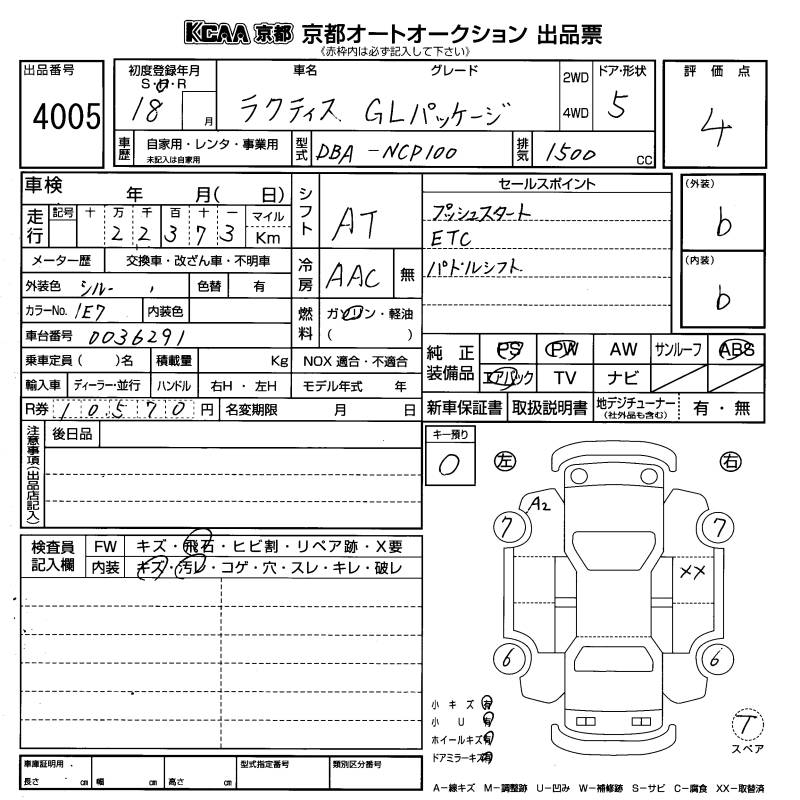 KCAA 京都 京都オートオークション 出品票
《赤枠内は必ず記入して下さい》
出品番号
4005
初度登録年月
S・H・R
18 月
車名 グレード
ラクティス GLパッケージ
2WD
4WD
ドア・形状
5
評価点
4
車歴
自家用・レンタ・事業用
未記入は自家用
型式
DBA-NCP100
排気
1500 cc
車検 年 月( 日)
走行
記号 十 万 千 百 十 一 マイル
2 2 3 7 3 Km
メーター歴 交換車・改ざん車・不明車
外装色 シルー 色替 有
カラーNo. 1E7 内装色
車台番号 0036291
乗車定員( )名 積載量 Kg
輸入車 ディーラー・並行 ハンドル 右H・左H
R券 10,570 円 名変期限 月 日
シフト AT
冷房 AAC 無
燃料 ガソリン・軽油
( )
NOX 適合・不適合
モデル年式 年
セールスポイント
プッシュスタート
ETC
パドルシフト
(外装)
b
(内装)
b
純正装備品
PS PW AW サンルーフ ABS
エアバック TV ナビ
新車保証書 取扱説明書 地デジチューナー
(社外品も含む)
有・無
注意事項(出品店記入)
後日品
キー預り
0
検査員記入欄
FW キズ・飛石・ヒビ割・リペア跡・X要
内装 キズ・汚レ・コゲ・穴・スレ・キレ・破レ
左 右
A2
7 7
XX
6 6
小キズ 有
小U 有
ホイールキズ 有
ドアミラーキズ 有
T
スペア
車庫証明用
長さ cm 幅 cm 高さ cm
型式指定番号
類別区分番号
A−線キズ M−調整跡 U−凹み W−補修跡 S−サビ C−腐食 XX−取替済